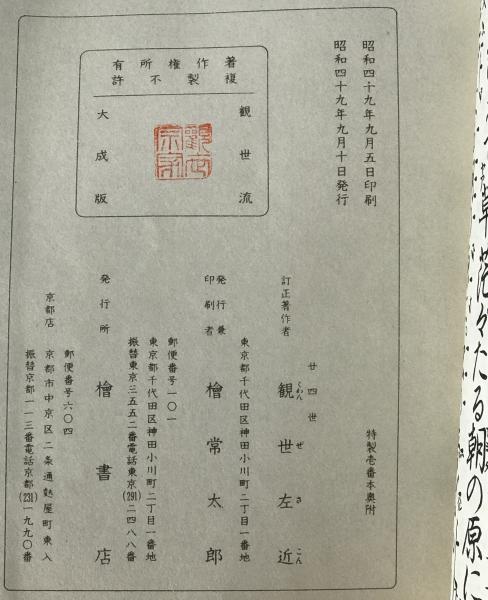 昭和四十九年九月五日印刷
昭和四十九年九月十日発行
著作権所有
複製不許
観世流
観世宗家
大成版
特製壱番本奥附
訂正著作者
廿四世
観世左近
くわんぜさこん
東京都千代田区神田小川町二丁目一番地
発行兼
印刷者
檜常太郎
郵便番号一〇一
東京都千代田区神田小川町二丁目一番地
振替東京三五五二番電話東京(291)二四八八番
発行所
檜書店
郵便番号六〇四
京都店
京都市中京区二条通麩屋町東入
振替京都一一三番電話京都(231)一九九〇番
草茫々たる朝の原に